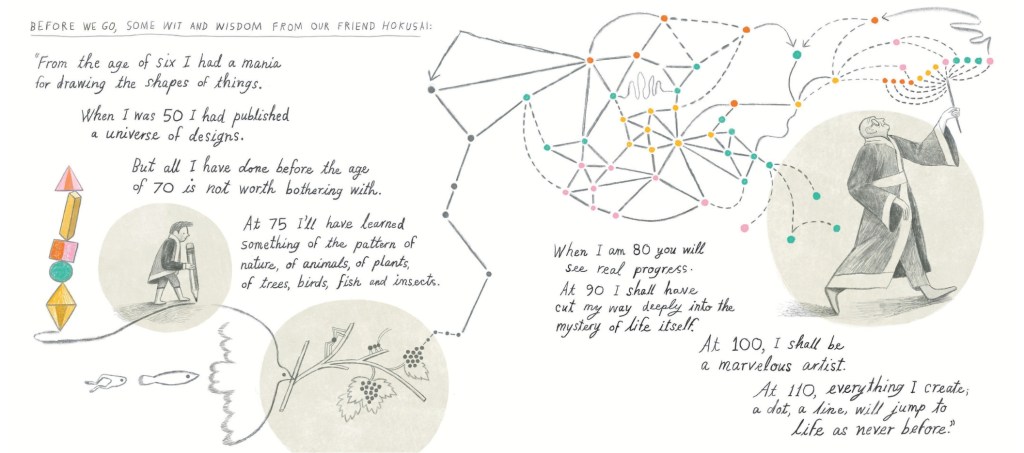 BEFORE WE GO, SOME WIT AND WISDOM FROM OUR FRIEND HOKUSAI:
"From the age of six I had a mania
for drawing the shapes of things.
When I was 50 I had published
a universe of designs.
But all I have done before the age
of 70 is not worth bothering with.
At 75 I'll have learned
something of the pattern of
nature, of animals, of plants,
of trees, birds, fish and insects.
When I am 80 you will
see real progress.
At 90 I shall have
cut my way deeply into the
mystery of life itself.
At 100, I shall be
a marvelous artist.
At 110, everything I create;
a dot, a line, will jump to
life as never before."